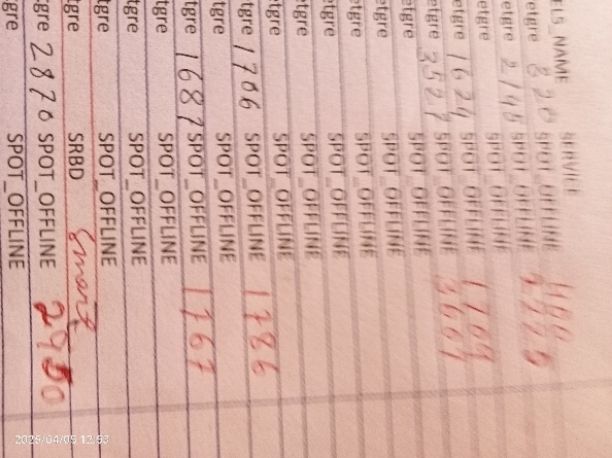 ELS_NAME SERVICE
etgre 820 SPOT_OFFLINE
etgre 2148 SPOT_OFFLINE
etgre SPOT_OFFLINE
etgre 1629 SPOT_OFFLINE 1769
etgre 3527 SPOT_OFFLINE 3667
etgre SPOT_OFFLINE
etgre SPOT_OFFLINE
etgre SPOT_OFFLINE
etgre SPOT_OFFLINE
etgre SPOT_OFFLINE
etgre SPOT_OFFLINE
etgre 1706 SPOT_OFFLINE 1786
etgre SPOT_OFFLINE
etgre 1687 SPOT_OFFLINE 1767
etgre SPOT_OFFLINE
tgre SPOT_OFFLINE
tgre SPOT_OFFLINE
tgre SRBD Smart
tgre 2870 SPOT_OFFLINE 2950
tgre SPOT_OFFLINE